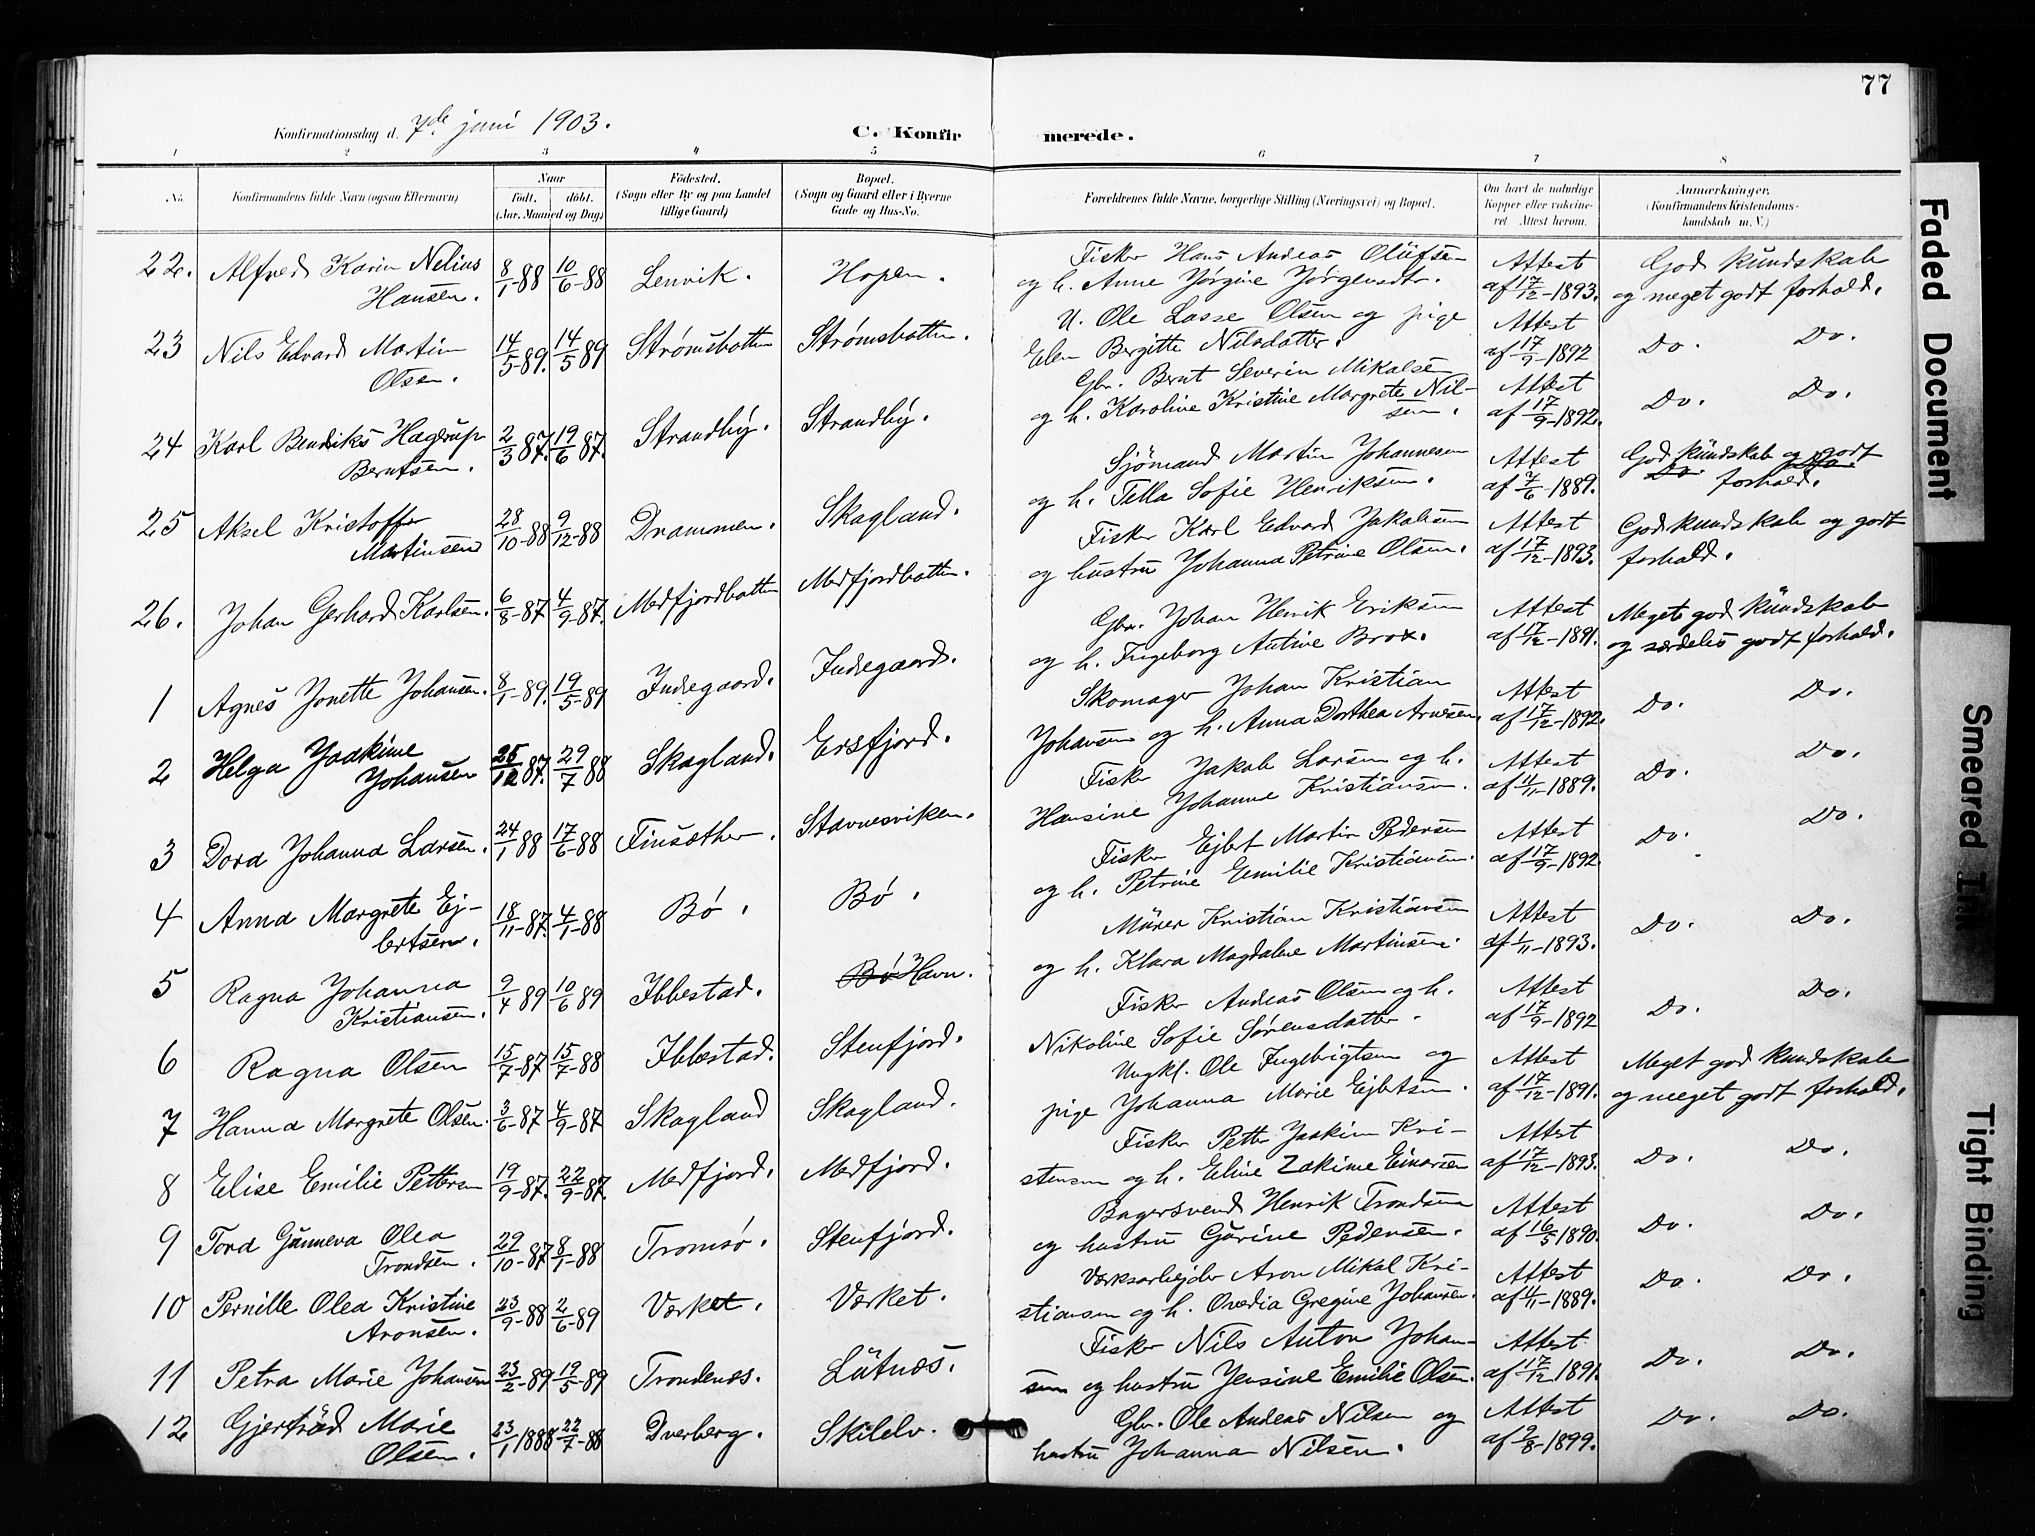 77
Konfirmationsdag d. 7de juni 1903.
C. Konfirmerede.
1 2 3 4 5 6 7 8
No.
Konfirmandens fulde Navn (ogsaa Efternavn)
Naar
født. døbt.
(Aar, Maaned og Dag)
Fødested.
(Sogn eller By og paa Landet
tillige Gaard)
Bopæl.
(Sogn og Gaard eller i Byerne
Gade og Hus-No.
Forældrenes fulde Navne, borgerlige Stilling (Næringsvei) og Bopæl.
Om havt de naturlige
Kopper eller vakcine-
ret. Attest herom.
Anmærkninger.
(Konfirmandens Kristendoms-
kundskab m. V.)
22. Alfred Karin Nelius Hansen. 8/1-88 10/6-88 Lenvik. Hopen.
Fisker Hans Andreas Olufsen
og h. Anne Jørgine Jørgensdtr.
Attest af 17/12-1893.
God kundskab
og meget godt forhold.
23 Nils Edvard Martin Olsen. 14/5-89. 14/5 89 Strømsbotten Strømsbotten.
U. Ole Lasse Olsen og pige
Elen Bergitte Nilsdatter.
Attest af 17/9-1892
Do. Do.
24 Karl Bendiks Hagerup Berntsen. 2/3 87. 19/6 87. Strandby. Strandby.
Gbr. Bernt Severin Mikalsen
og h. Karoline Kristine Margrete Nil-
sen.
Attest af 17/9-1892.
Do. Do.
25 Aksel Kristoffer Martinsen 28/10-88 9/12-88 Drammen. Skagland.
Sjømand Martin Johannesen
og h. Tilla Sofie Henriksen.
Attest af 7/6-1889.
God kundskab og godt
forhold.
26. Johan Gerhard Karlsen. 6/8-87 4/9-87. Medfjordbotten Medfjordbotten.
Fisker Karl Edvard Jakobsen
og hustru Johanna Petrine Olsen.
Attest af 17/12-1893.
God kundskab og godt
forhold.
1 Agnes Jonette Johansen. 8/1-89. 19/5-89 Indregaard. Indregaard.
Gbr. Johan Henrik Eriksen
og h. Ingeborg Antine Brox.
Attest af 17/12-1891.
Meget god kundskab
og særdeles godt forhold.
2 Helga Joakime Johansen 25/12 87. 29/7-88 Skagland. Ersfjord.
Skomager Johan Kristian
Johansen og h. Anna Dorthea Arnesen.
Attest af 17/12-1892.
Do. Do.
3 Dora Johanna Larsen. 24/1 88 17/6-88 Finsæther. Stavnesviken.
Fisker Jakob Larsen og h.
Hansine Johanne Kristiansen.
Attest af 4/11-1889.
Do. Do.
4 Anna Margrete Ej-
bertsen. 18/11-87. 4/1-88 Bø. Bø.
Fisker Ejbert Martin Pedersen
og h. Petrine Emilie Kristiansen.
Attest af 17/9-1892
Do. Do.
5 Ragna Johanna Kristiansen. 9/4 89 10/6 89 Ibbestad. Bø Havn.
Murer Kristian Kristiansen
og h. Klara Magdalene Martinsen.
Attest af 1/11-1893.
Do. Do.
6 Ragna Olsen 15/7-87 15/7-88 Ibbestad. Stenfjord.
Fisker Andreas Olsen og h.
Nikoline Sofie Sørensdatter.
Attest af 17/9-1892
Do. Do.
7 Hanna Margrete Olsen. 3/6-87 4/9-87 Skagland Skagland.
Ungkl. Ole Ingebrigtsen og
pige Johanna Marie Ejbertsen.
Attest af 17/12-1891.
Meget god kundskab
og meget godt forhold.
8 Elise Emilie Pettersen 19/9-87. 22/9-87. Medfjord. Medfjord.
Fisker Petter Joakim Kri-
stensen og h. Eline Zakime Einarsen
Attest af 17/12-1893.
Do. Do.
9 Tora Gunneva Olea Trondsen. 29/10-87 8/1-88 Tromsø. Stenfjord.
Bagersvend Henrik Trondsen
og hustru Gurine Pedersen.
Attest af 16/5 1890.
Do. Do.
10 Pernille Olea Kristine Aronsen. 23/9-88 2/6-89 Værket. Værket.
Værksarbejder Aron Mikal Kri-
stiansen og h. Ovedia Gregine Johansen.
Attest af 4/11-1889.
Do. Do.
11 Petra Marie Johansen 23/2-89 19/5-89 Trondenæs. Lutnæs.
Fisker Nils Anton Johan-
sen og hustru Jensine Emilie Olsen.
Attest af 17/12 1891.
Do. Do.
12 Gjertrud Marie Olsen. 23/1 1888 22/7-88 Dverberg. Skilelv.
Gbr. Ole Andreas Nilsen og
hustru Johanna Nilsen.
Attest af 9/8-1899.
Do. Do.
Faded Document
Smeared Ink
Tight Binding